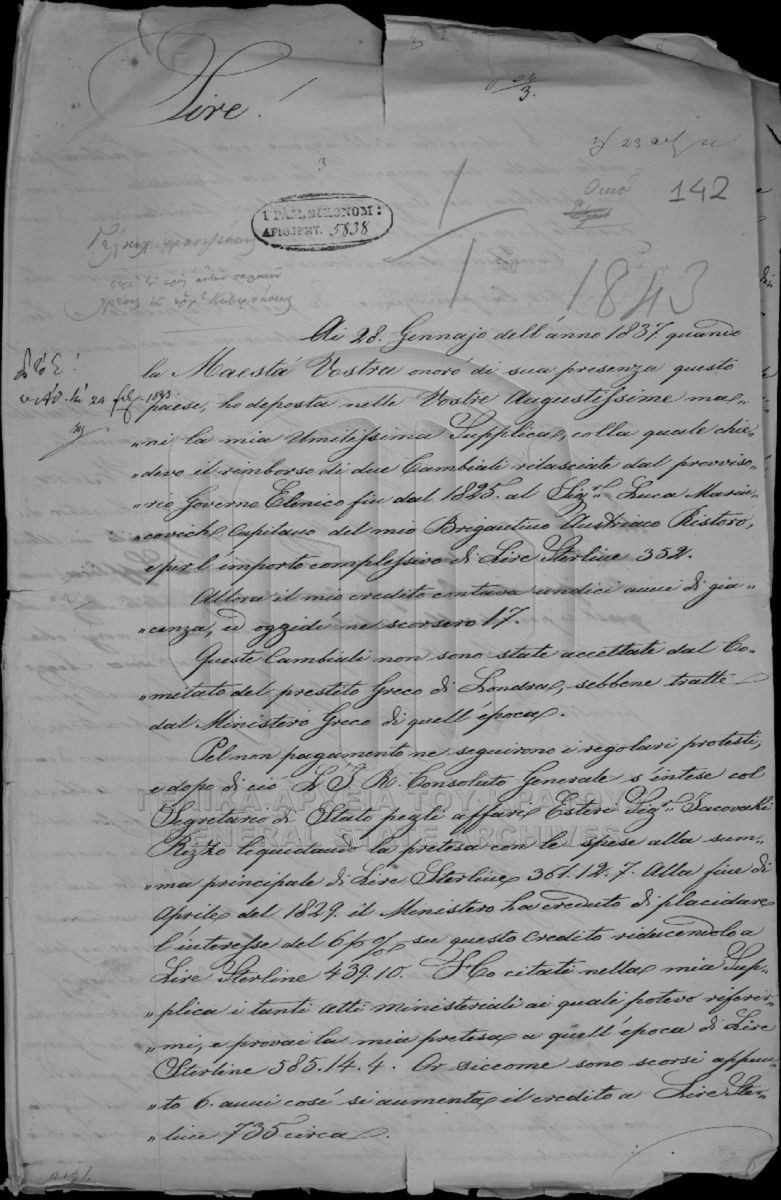 Sire!
3.
3
142
ΓΡΑΜ. ΟΙΚΟΝΟΜ:
ΑΡΙΘ. ΠΡΩΤ. 5838
1843
Ai 28. Gennajo dell'anno 1837 quando
la Maestá Vostra onoró di sua presenza questo
paese, ho deposta nelle Vostre Augustissime ma„
„ni la mia Umilissima Supplica, colla quale chie„
„devo il rimborso di due Cambiali rilasciate dal provviso„
„rio Governo Elenico fin dal 1825. al Sigr. Luca
Capitano del mio Brigantino Austriaco Ristoro,
e per l'importo complessivo di Lire Sterline 352.
Allora il mio credito contava undici anni di gia„
„cenza, ed oggidí ne scorsero 17.
Queste Cambiali non sono state accettate dal Co„
„mitato del prestito Greco di Londra, sebbene tratte
dal Ministero Greco di quell'época.
Pel non pagamento ne seguirono i regolari protesti,
e dopo di ció L'I. R. Consolato Generale s'intese col
Segretario di Stato pegli affari Esteri Sigr. Jacovaki
Rizzo liquidando la pretesa con le spese alla som„
„ma principale di Lire Sterline 361.12.7. Alla fine di
Aprile del 1829. il Ministero ha creduto di placidare
l'interesse del 6 p% su questo credito riducendolo a
Lire Sterline 439.10. Ho citati nella mia Sup„
„plica i tanti atti ministeriali ai quali potevo riferir„
„mi, e provai la mia pretesa a quell'época di Lire
Sterline 585.14.4. Or siccome sono scorsi appun„
„to 6. anni cosí si aumenta il credito a Lire Ster„
„line 735 circa.
ΓΕΝΙΚΑ ΑΡΧΕΙΑ ΤΟΥ ΚΡΑΤΟΥΣ
GENERAL STATE ARCHIVES